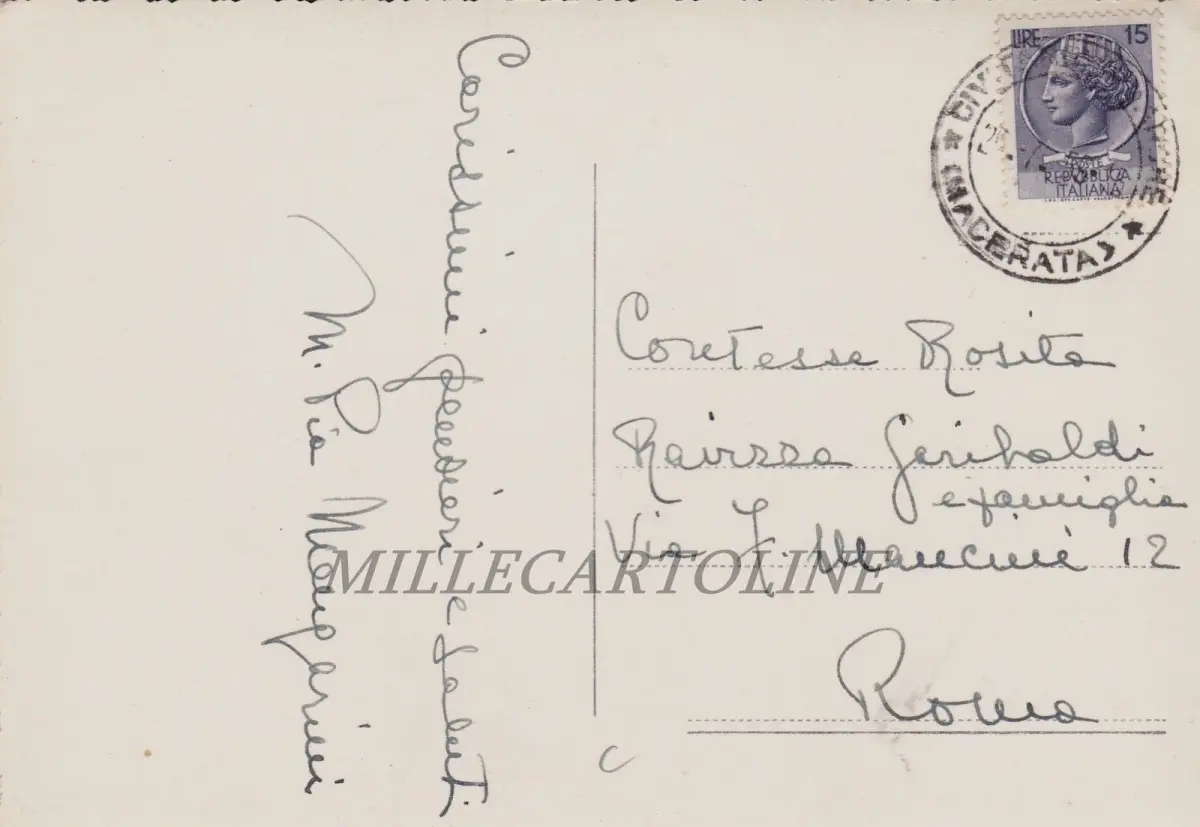 Carissimi pensieri e saluti
M. Pia Mangarini
LIRE 15
POSTE
REPUBBLICA
ITALIANA
(MACERATA)
Contessa Rosita
Ravizza Garibaldi
e famiglia
Via J. Mancini 12
Roma
MILLECARTOLINE
C